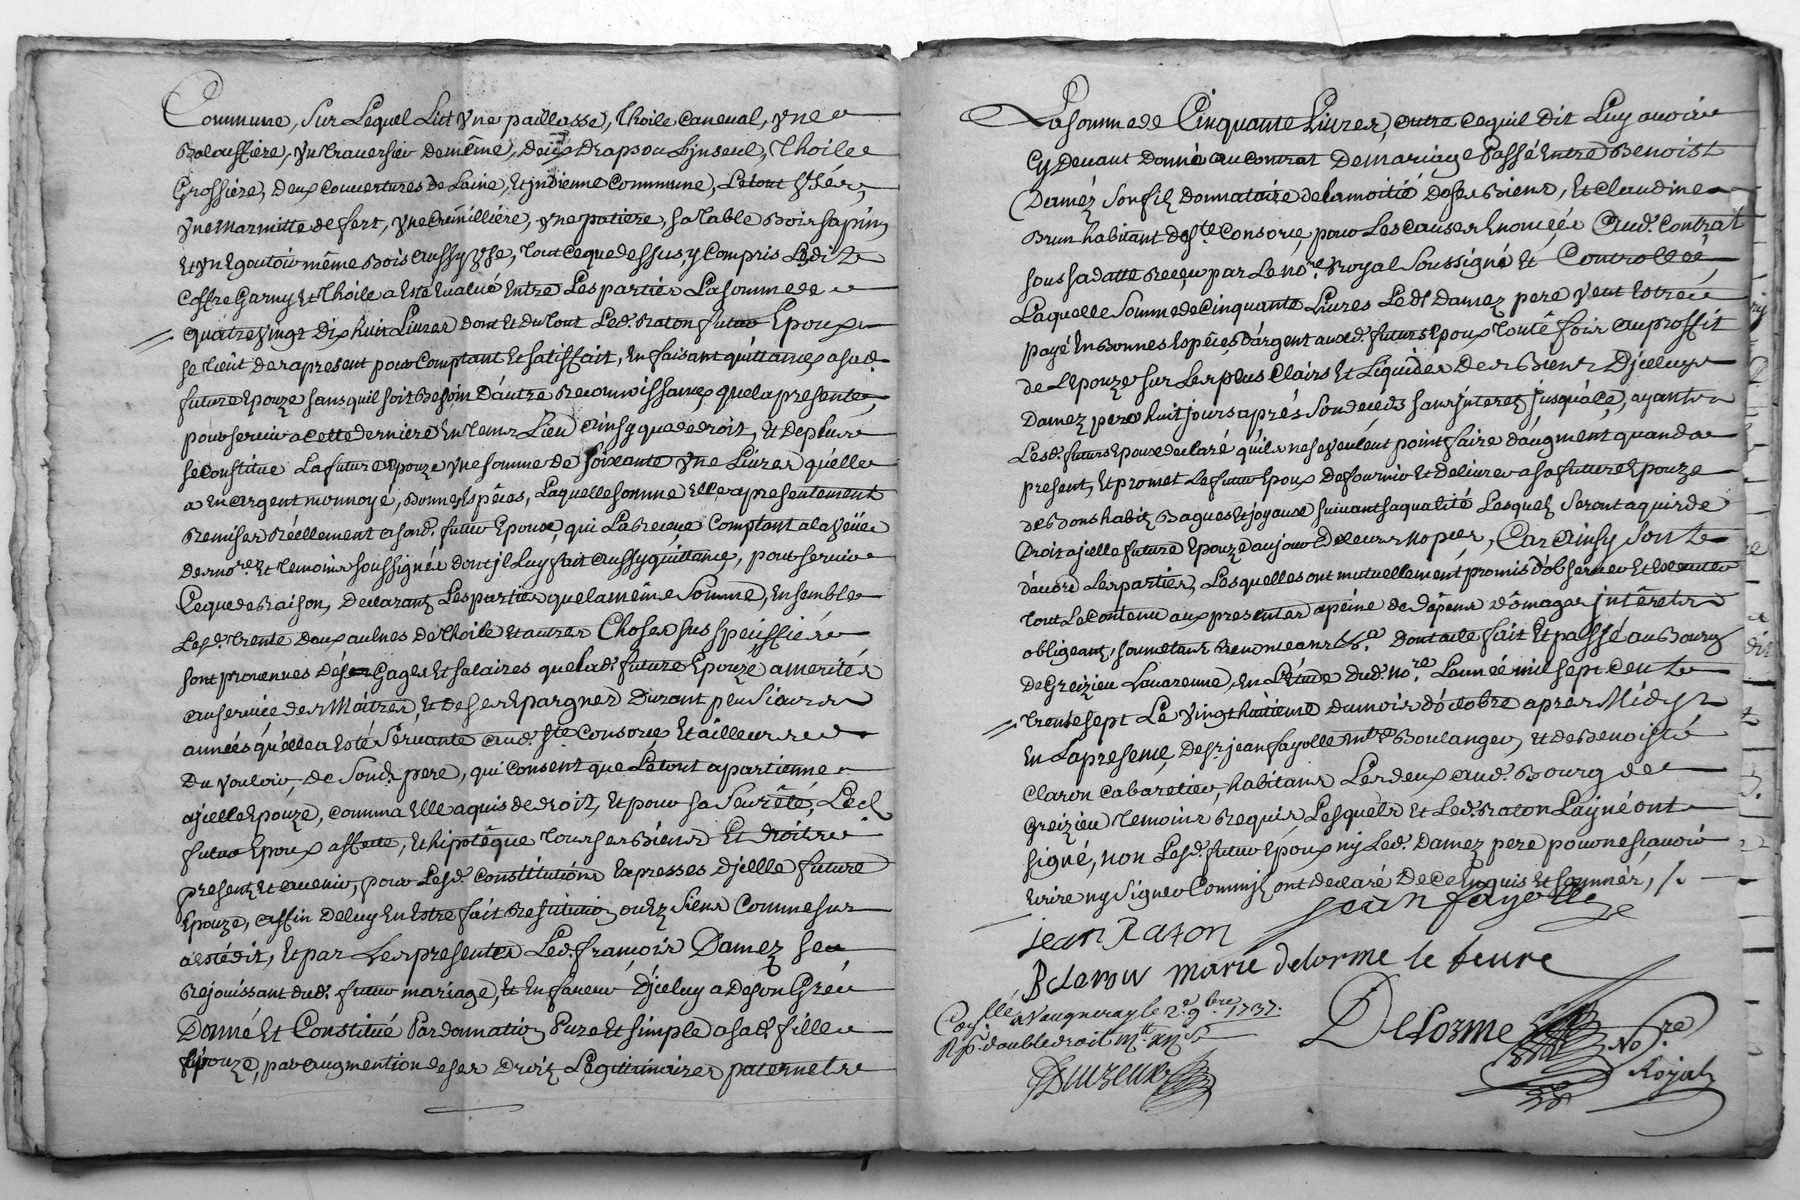 Commune, Sur Lequel Lict yne paillasse, Thoile caneual, yne
Balouffiere, yn Traversier de même, deux draps ou Linseul, Thoile
Grossiere, deux couvertures de Laine, Et yndienne commune, Le tout yse,
yne Marmitte de fert, yne Cremilliére, yne patiere, sa Table Bois sapin,
Et yn Egoutoir même Bois aussy yse, Tout ce que dessus, y Compris Ledit
Coffre Garny Et Thoile a Esté Eualué Entre Les parties La somme de
quatre vingt dix huit Liures dont Et du tout Led. Raton futur Epoux
se tient des apresent pour Comptant Et satisfait, En faisant quittance a sad.
future Epouze sans quil soit Besoin d'autre Reconnoissance que la presente,
pour servir a cette derniere En tems Lieu ainsy que de droit, Et de plus
se Constitue La future Epouze yne somme de soixante yne Liures quelle
a En argent monnoyé, bonnes Espéces, Laquelle somme Elle a presentement
Remise Réellement a sond. futur Epoux, qui La Reçeue Comptant a la Veüe
des no.re Et temoins soussignés dont jl Luy fait aussy quittance, pour servir
Ce que de Raison, Declarant Les parties que la même somme, Ensemble
Lesd. trente deux aulnes de Thoile Et autres Choses sus speciffiées
sont prouenues Des Gages Et salaires que lad. future Epouze a merités
au service des Maîtres, Et de ses Epargnes Durant plusieurs
années qu'elle a Esté Servante aud. S.te Consorce Et ailleurs
Du vouloir de Sond. pere, qui Consent que Le tout apartienne
ajcelle Epouze, comme Elle a quis de droit, Et pour sa Seureté, Led.
futur Epoux affecte, Et hipotêque tous ses Biens Et droits
presents Et avenir, pour Lesd. Constitutions Expresses Djcelle future
Epouze, affin de luy En Estre fait Restitution ou Ez Siens Comme sur
a esté dit, Et par Les presentes Led. françois Damez se
Rejouissant dud. futur mariage, Et En faueur Djceluy a De son Gré
Donné Et Constitué Par donnation Pure Et simple a sad. fille
Epouze, par augmention de ses Droits Legitimaires paternels
La somme de Cinquante Liures, outre ce quil dit Luy avoir
Cy Devant donné au contrat De mariage Passé Entre Benoist
Damez Son fils Donnataire de la moitié de ses Biens, Et Claudine
Brun habitant de S.te Consorce, pour Les causes Enoncées Aud. Contrat
sous sa datte Reçu par Le no.re Royal Soussigné Et Controllé,
Laquelle Somme de Cinquante Liures Led. Damez pere veut Estre
payé En Bonnes Espéces D'argent auxd. futurs Epoux toute fois au proffit
de L'Epouze sur Les plus Clairs Et Liquides Des Biens Djceluy
Damez pere huit jours aprés Son decéds sans jnterez jusqu'à ce, ayant
Lesd. futurs Epoux declaré qu'ils ne se veulent point faire d'augment quand a
present, Et promet Le futur Epoux De fournir Et delivrer a sa future Epouze
des Bons habits Bagues Et joyaux suivant sa qualité Lesquels Seront aquis de
Droit ajcelle future Epouze au jour de leurs nopces, Car Ainsy sont
d'acord Les parties, Lesquelles ont mutuellement promis d'observer Et Executer
tout Le Contenu aux presentes a peine de dépens domages jntérets
obligeans, soumetans Renonceans &.a Dont acte fait Et passé au Bourg
De Greizieu Lavarenne, En L'Etude dud. no.re L'année mil sept cent
trente sept Le vingt huitieme Du mois d'octobre apres Midy
En La presence, De s.r jean fayolle m.tre Boulanger, Et de Benoist
Claron Cabaretier, habitans Les deux aud. Bourg de
Greizieu temoins Requis Lesquels Et Led. Raton L'ayné ont
signé, non Lesd. futur Epoux ny Led. Damez pere pour ne sçavoir
Ecrire ny Signer Comm'jls ont declaré De Ce Enquis Et sommés, /.
jean fayolle
jean Raton
B Claron marie delorme le feure
Con.llé a Vaugneray le 2.e 9.bre 1737.
Delorme No.re Royal